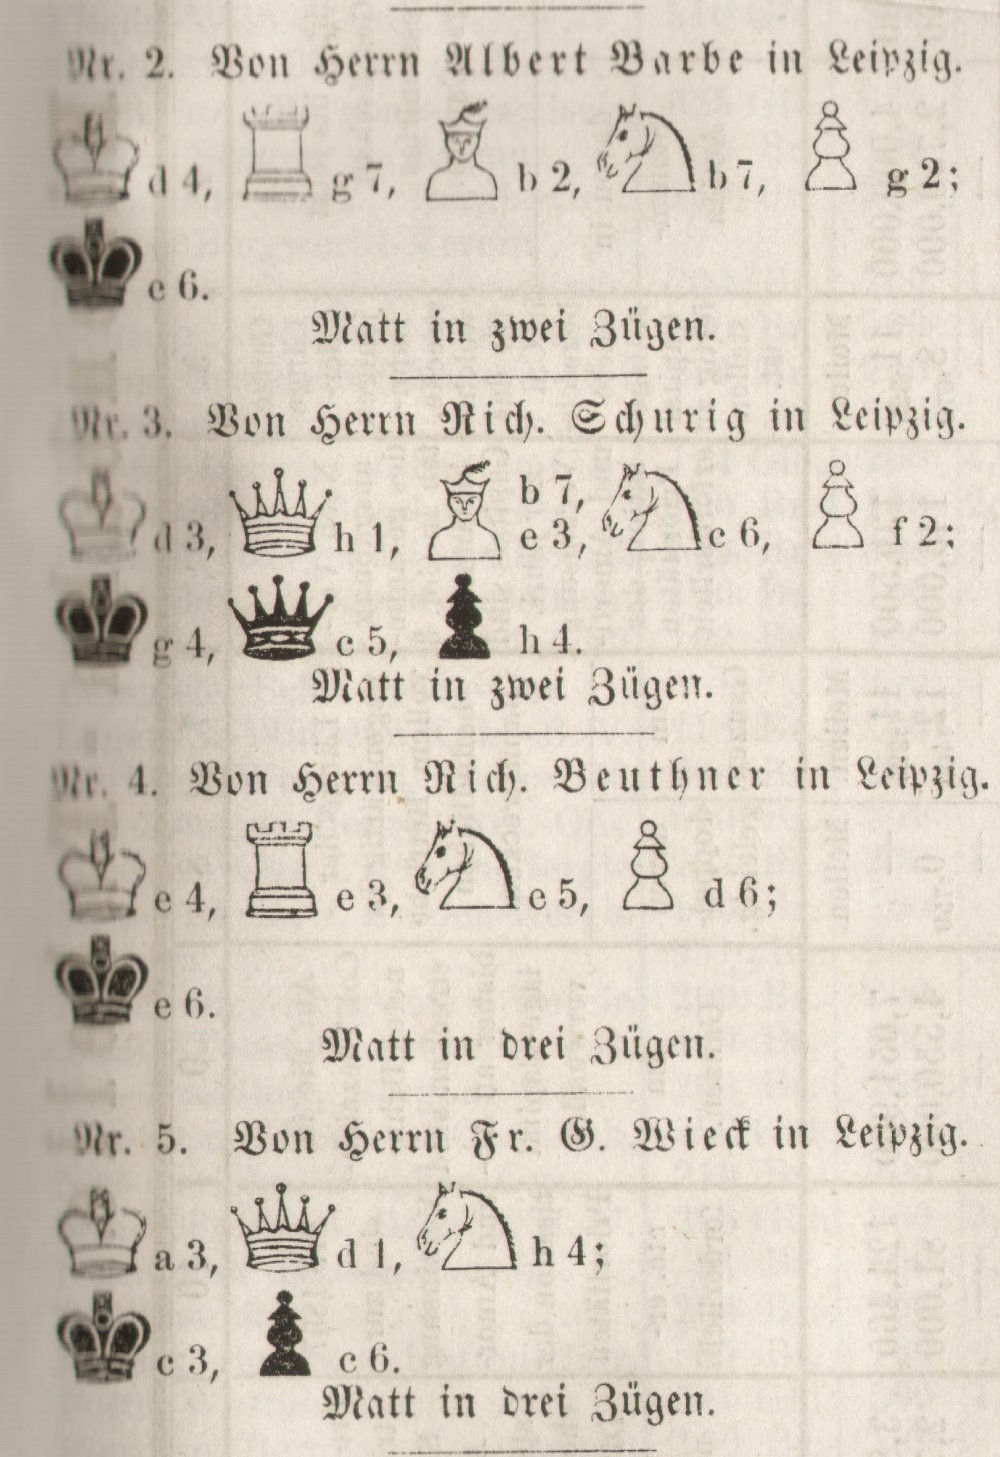 Nr. 2. Von Herrn Albert Barbe in Leipzig.
d 4, g 7, b 2, b 7, g 2;
e 6.
Matt in zwei Zügen.
Nr. 3. Von Herrn Rich. Schurig in Leipzig.
d 3, h 1, b 7, e 3, e 6, f 2;
g 4, c 5, h 4.
Matt in zwei Zügen.
Nr. 4. Von Herrn Rich. Beuthner in Leipzig.
e 4, e 3, e 5, d 6;
e 6.
Matt in drei Zügen.
Nr. 5. Von Herrn Fr. G. Wieck in Leipzig.
a 3, d 1, h 4;
c 3, c 6.
Matt in drei Zügen.